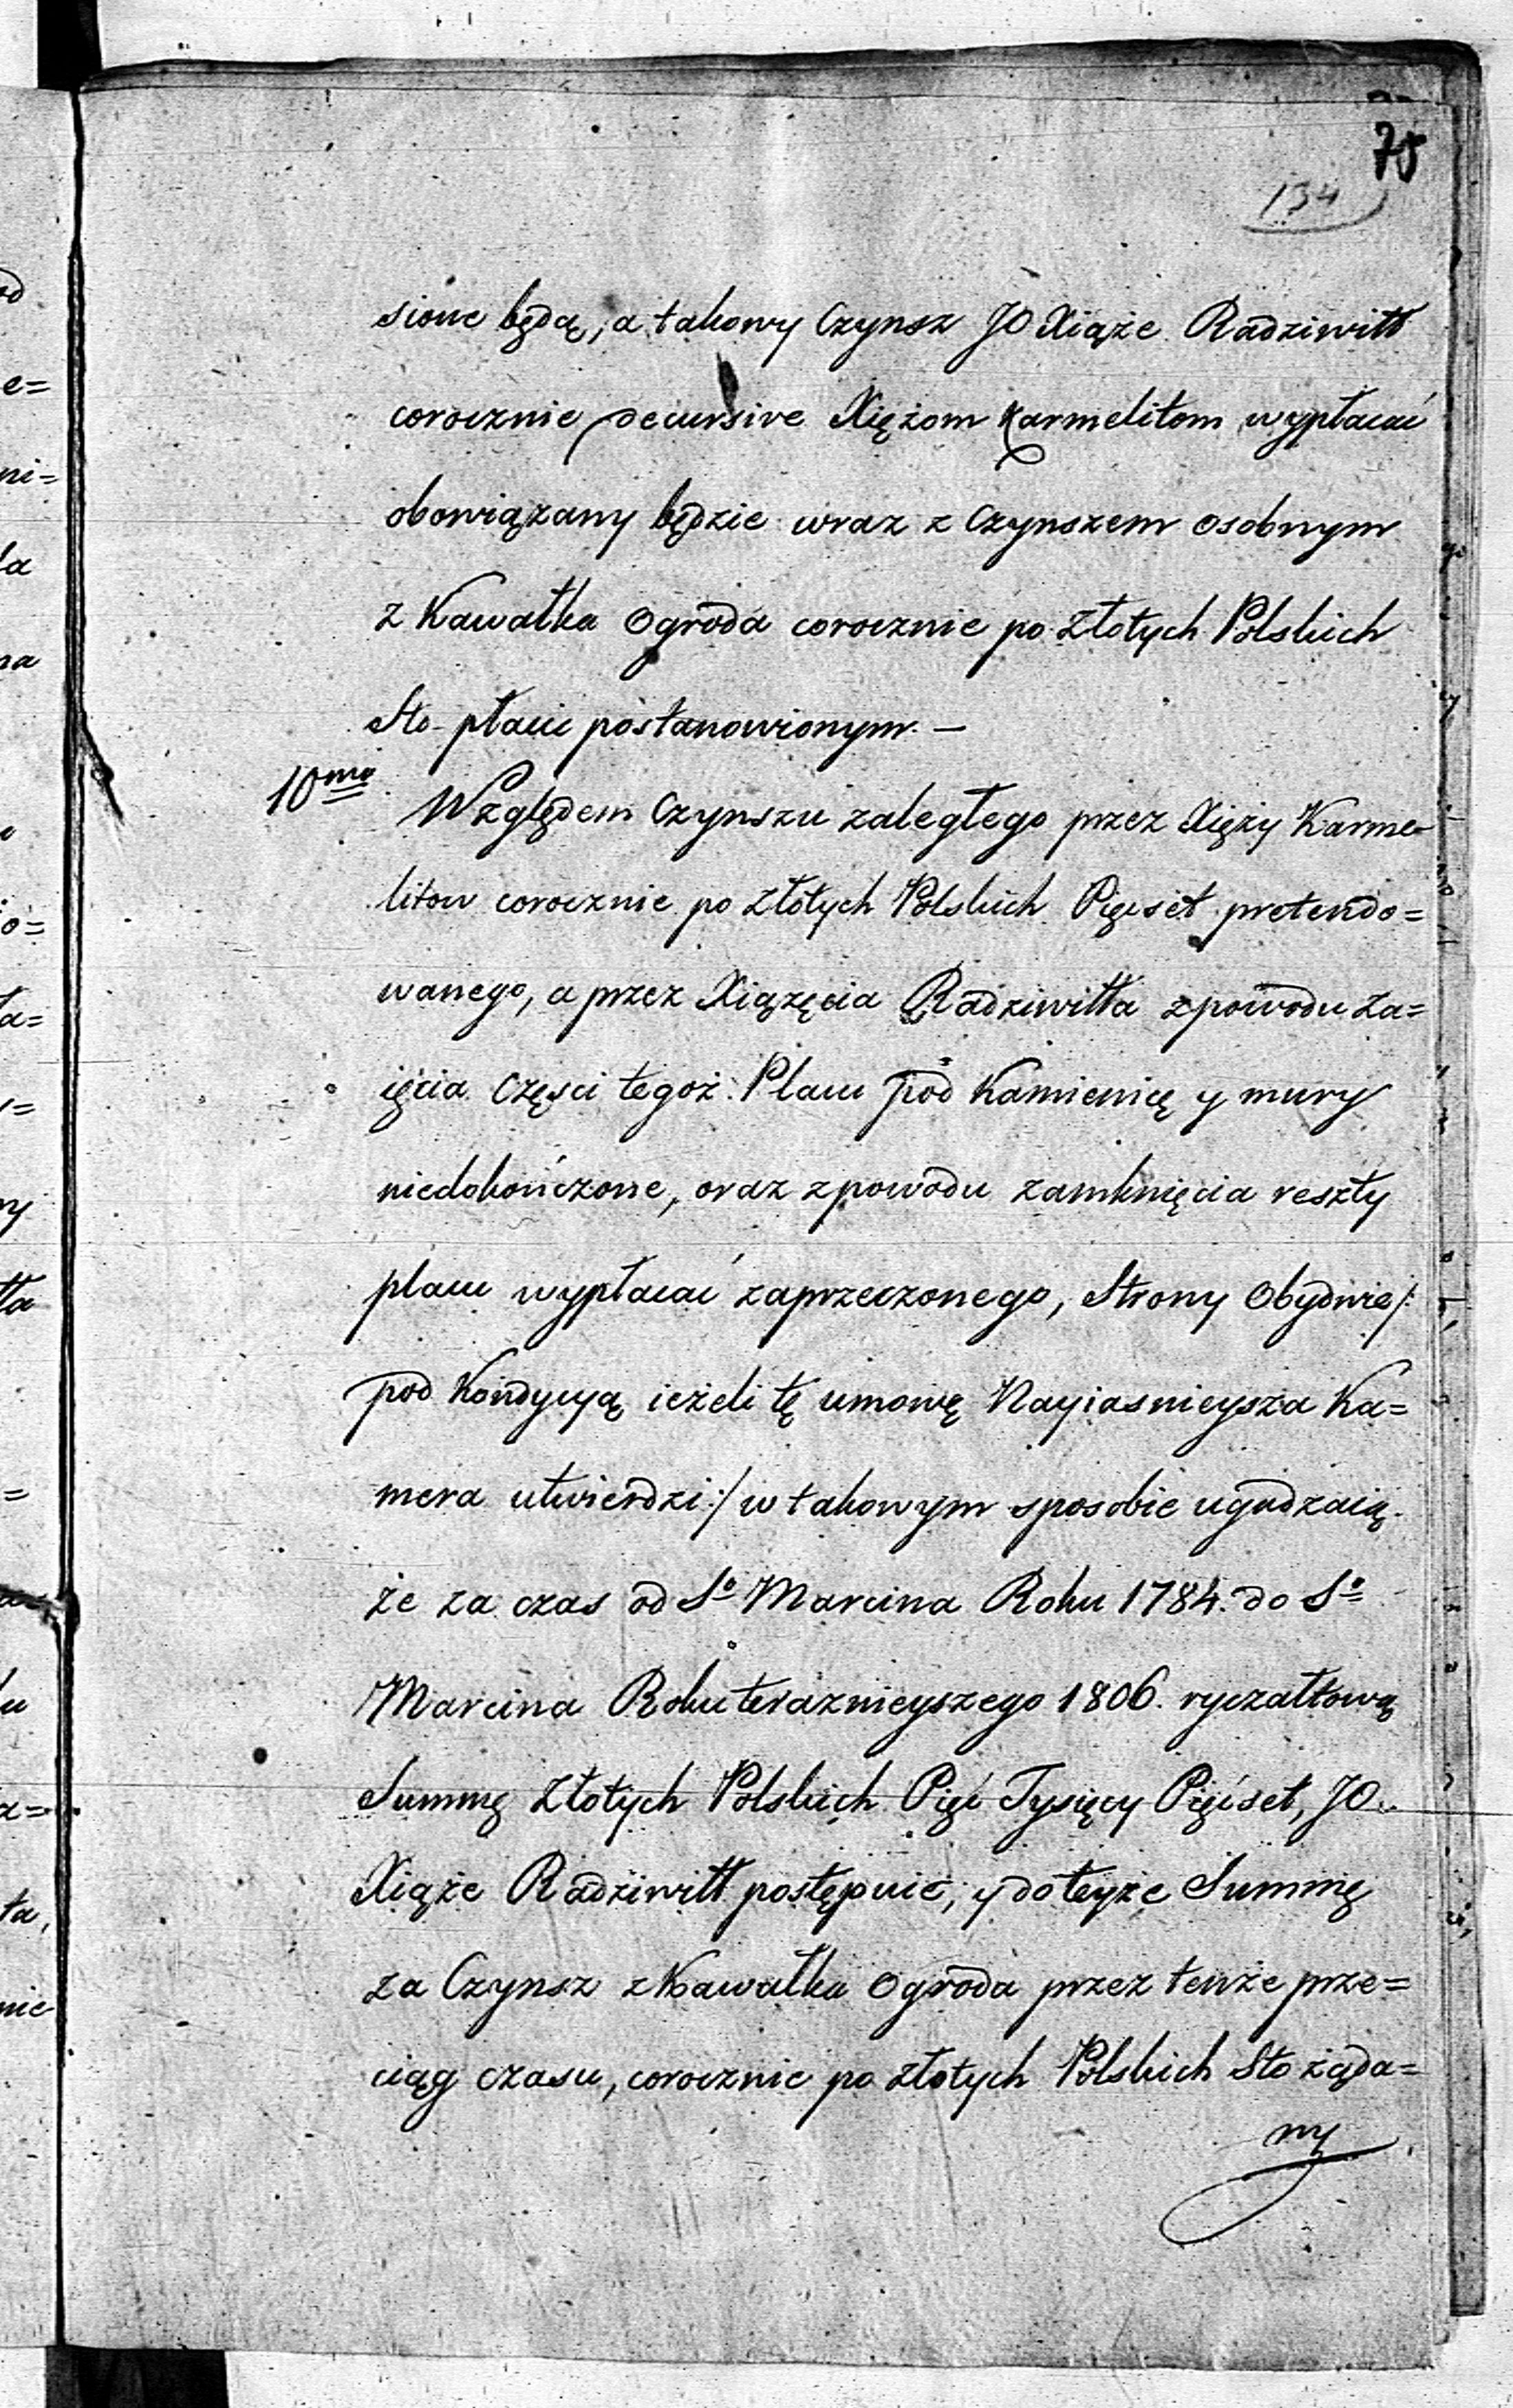 75
134
sione będą, a takowy Czynsz JO Xiąże Radziwiłł
corocznie decursive Xiężom Karmelitom wypłacać
obowiązany będzie wraz z Czynszem osobnym
z Kawałka Ogroda corocznie po Złotych Polskich
Sto płacić postanowionym. —
10mo Względem Czynszu zaległego przez Xięży Karme-
litow corocznie po Złotych Polskich Pięćset pretendo=
wanego, a przez Xiązęcia Radziwiłła z powodu za=
ięcia Częsci tegoż Placu pod Kamienicę y mury
niedokończone, oraz z powodu zamknięcia reszty
placu wypłacać zaprzeczonego, Strony Obydwie /:
pod Kondycyą ieżeli tę umowę Nayiasnieysza Ka=
mera utwierdzi :/ w takowym sposobie ugadzaią.
że za czas od So Marcina Roku 1784. do So
Marcina Roku teraznieyszego 1806. ryczałtową
Summę Złotych Polskich Pięć Tysięcy Pięćset, JO.
Xiąże Radziwiłł postępuie, y do teyże Summy
za Czynsz z Kawałka Ogroda przez tenże prze=
ciąg czasu, corocznie po Złotych Polskich Sto żąda=
ny